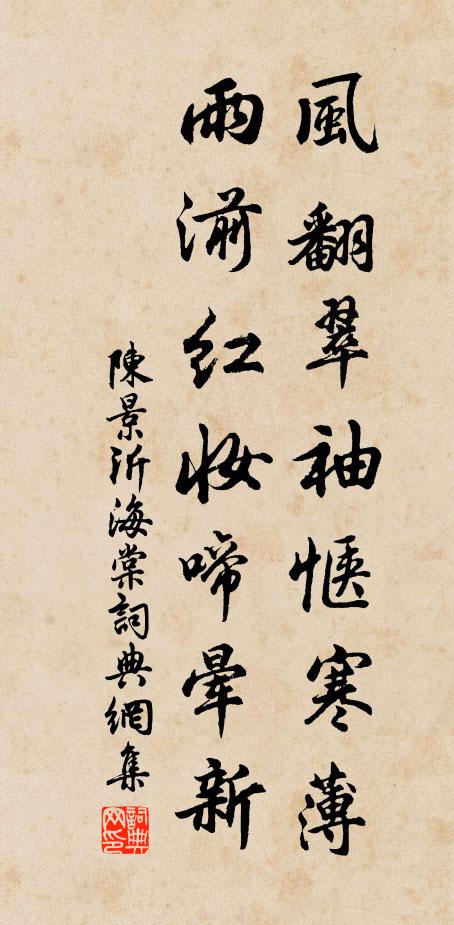 風翻翠袖惬寒薄
雨湔紅妝啼暈新
陳景沂海棠詞典網集
詞典网印